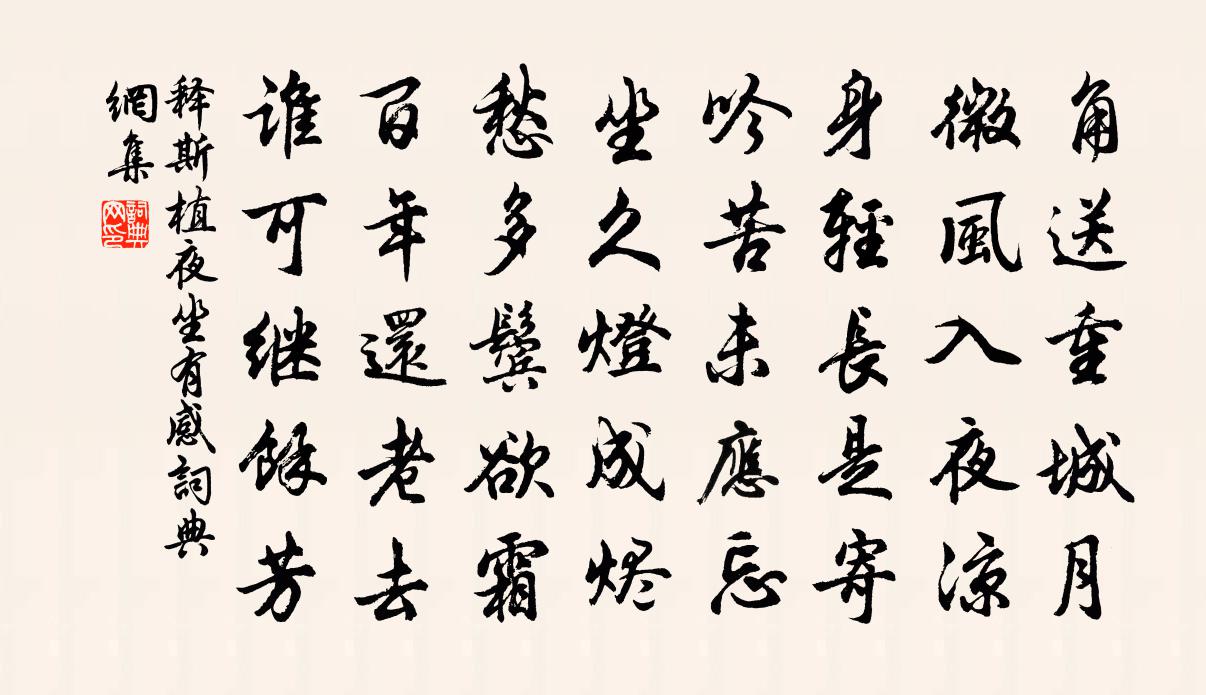 角送重城月
微風入夜涼
身輕長是寄
吟苦未應忘
坐久燈成烬
愁多鬢欲霜
百年還老去
誰可継餘芳
释斯植夜坐有感詞典
網集
詞典
网印